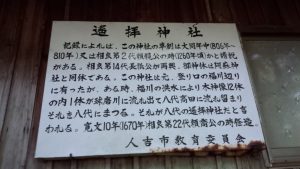 遥拝神社
記録によれば、この神社の草創は大同年中(806年～
810年)又は相良第2代頼親公の時(1260年頃)かと諸説
がある。相良第14代長祗公が再興、御神体は阿蘇神
社と同体である。この神社は元、登り口の福川辺り
に有ったが、ある時、福川の洪水により木神像12体
の内1体が球磨川に流れ出て八代高田に流れ留まり
それを八代にまつる。それが八代の遥拝神社だと言
われる。寛文10年(1670年)相良第22代頼喬公の時修造。
人吉市教育委員会